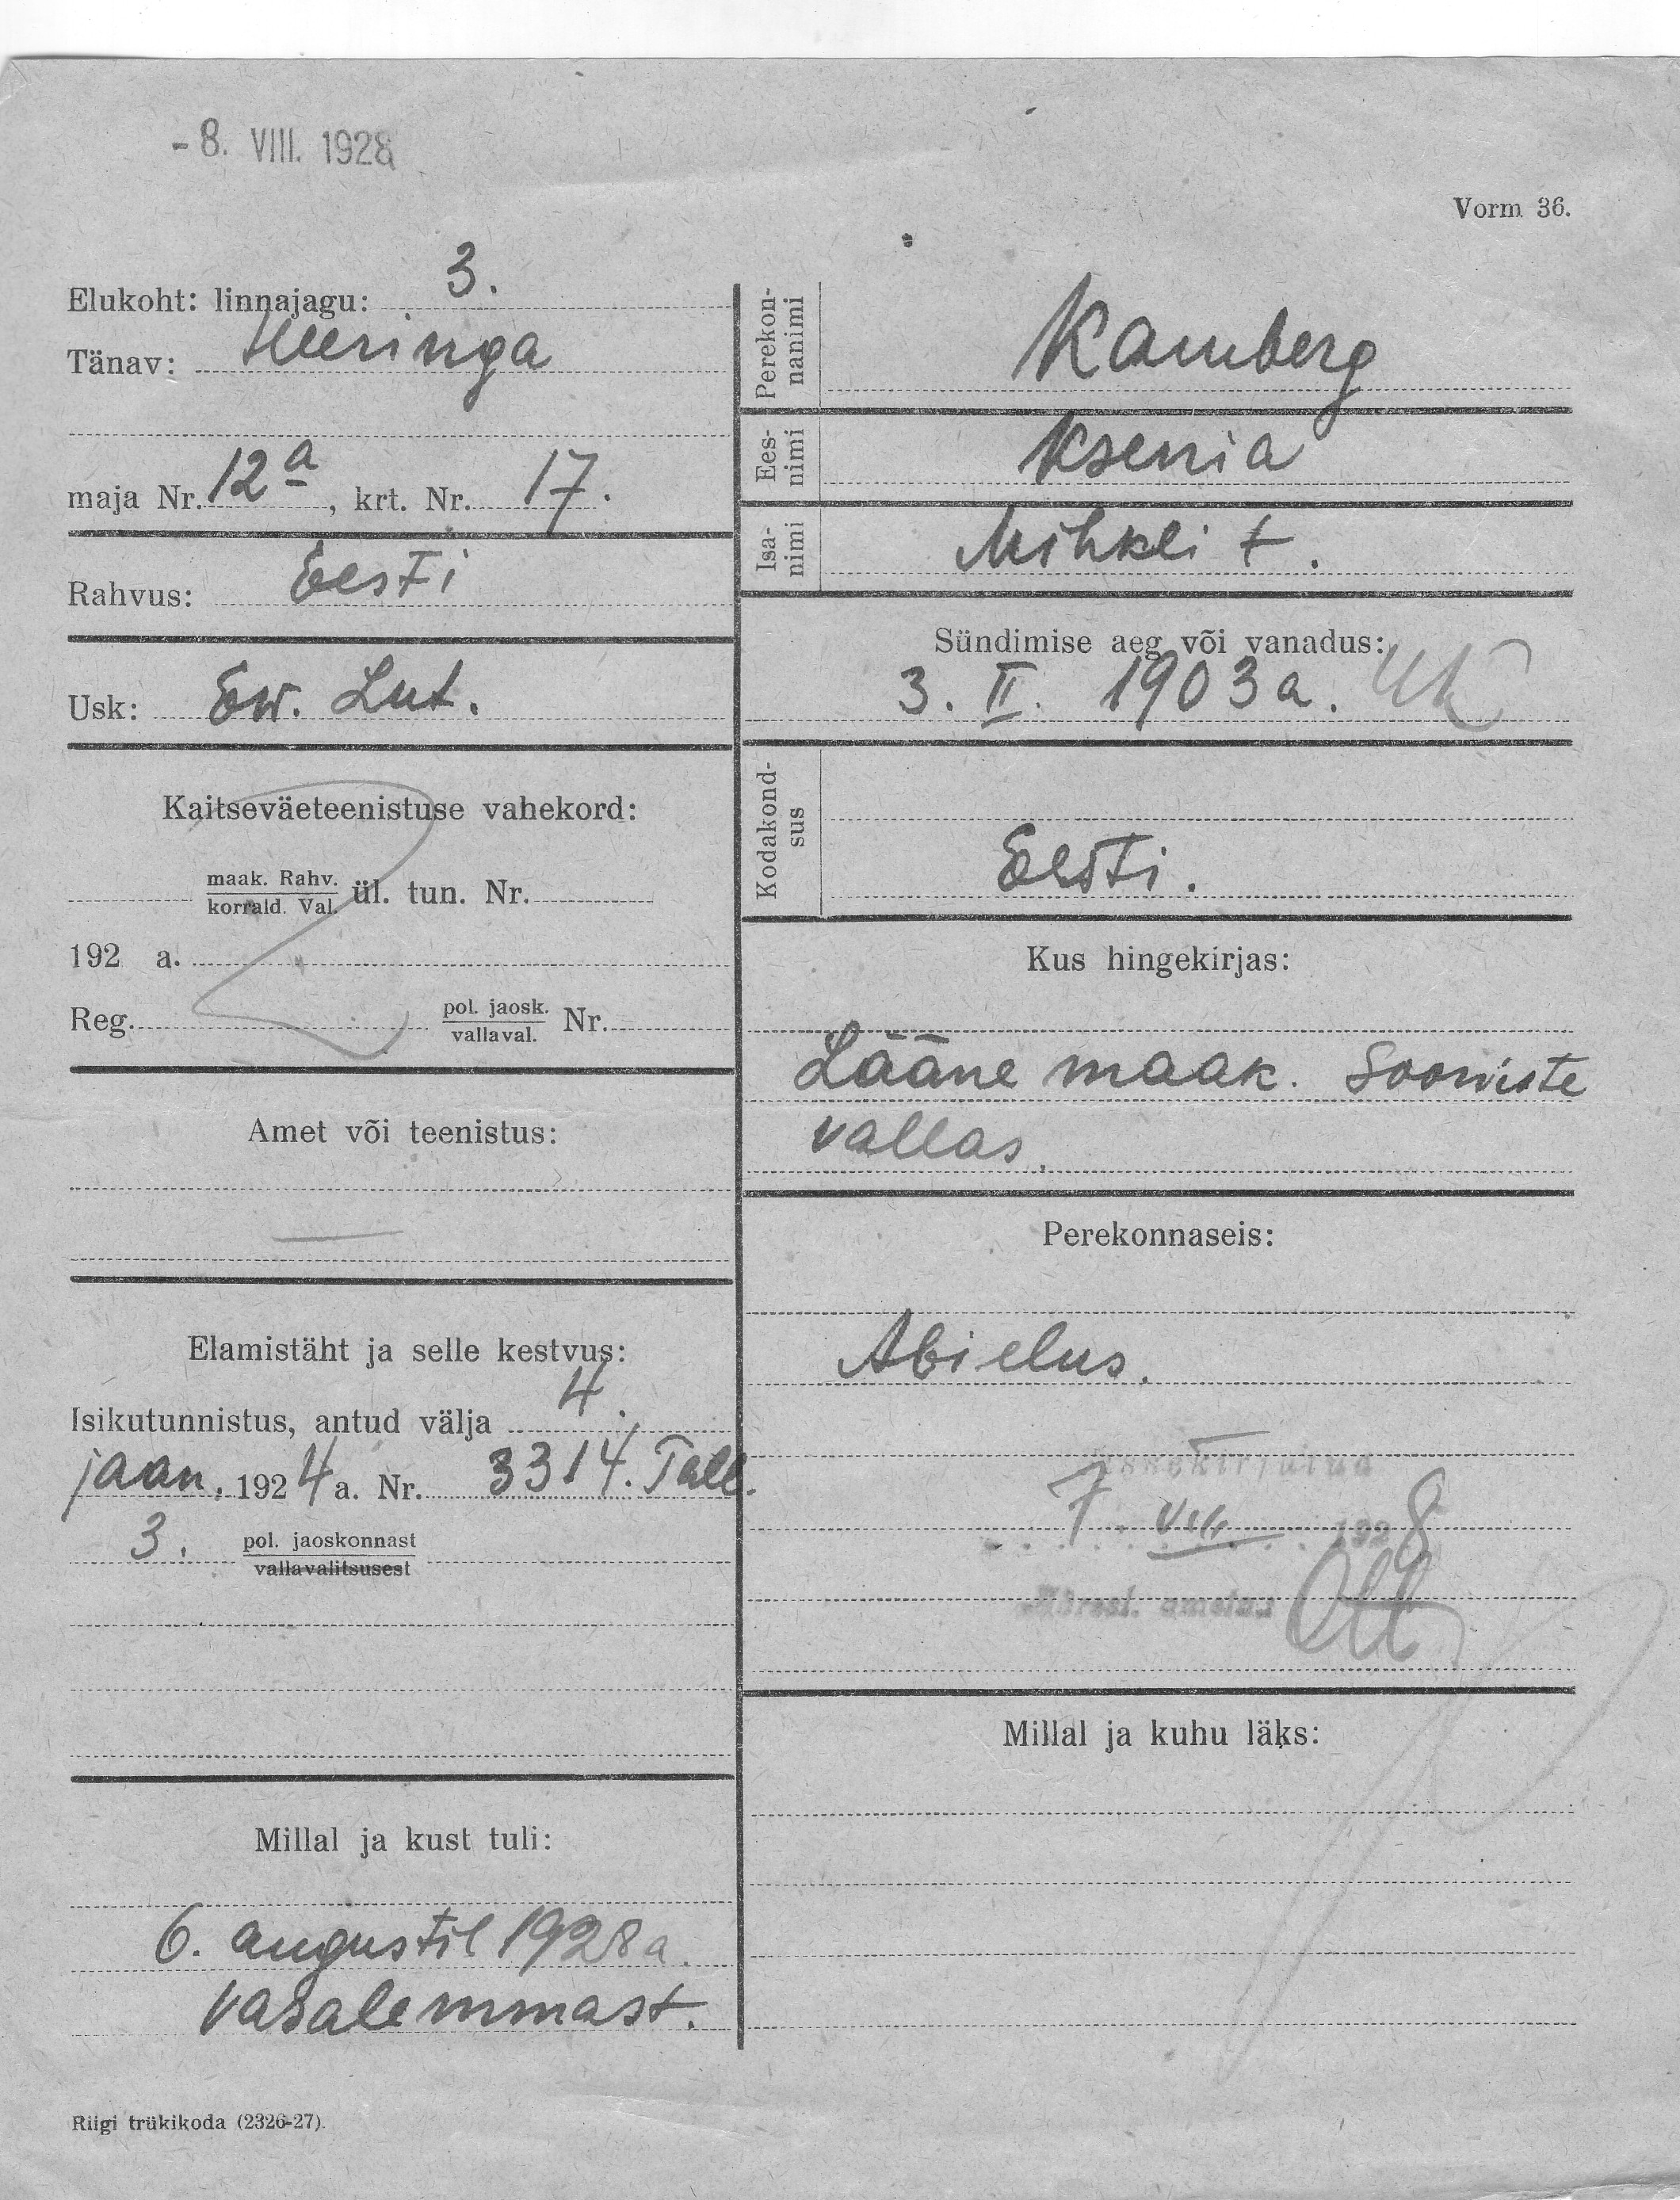 - 8. VIII. 1928
Vorm 36.
Elukoht: linnajagu: 3.
Tänav: Heeringa
maja Nr. 12a, krt. Nr. 17.
Rahvus: Eesti
Usk: Ew. Lut.
Kaitseväeteenistuse vahekord:
maak. Rahv.
korrald. Val. ül. tun. Nr.
192 a.
Reg. pol. jaosk.
vallaval. Nr.
Amet või teenistus:
—
Elamistäht ja selle kestvus:
Isikutunnistus, antud välja 4.
jaan. 1924 a. Nr. 3314. Tall.
3. pol. jaoskonnast
vallavalitsusest
Millal ja kust tuli:
6. augustil 1928 a.
Vasalemmast.
Riigi trükikoda (2326-27).
Perekon-
nanimi
Kamberg
Ees-
nimi
Ksenia
Isa-
nimi
Mihkli t.
Sündimise aeg või vanadus:
3. II. 1903 a.
Kodakond-
sus
Eesti.
Kus hingekirjas:
Lääne maak. Sooniste
vallas.
Perekonnaseis:
Abielus.
7. VIII 1928
Millal ja kuhu läks: